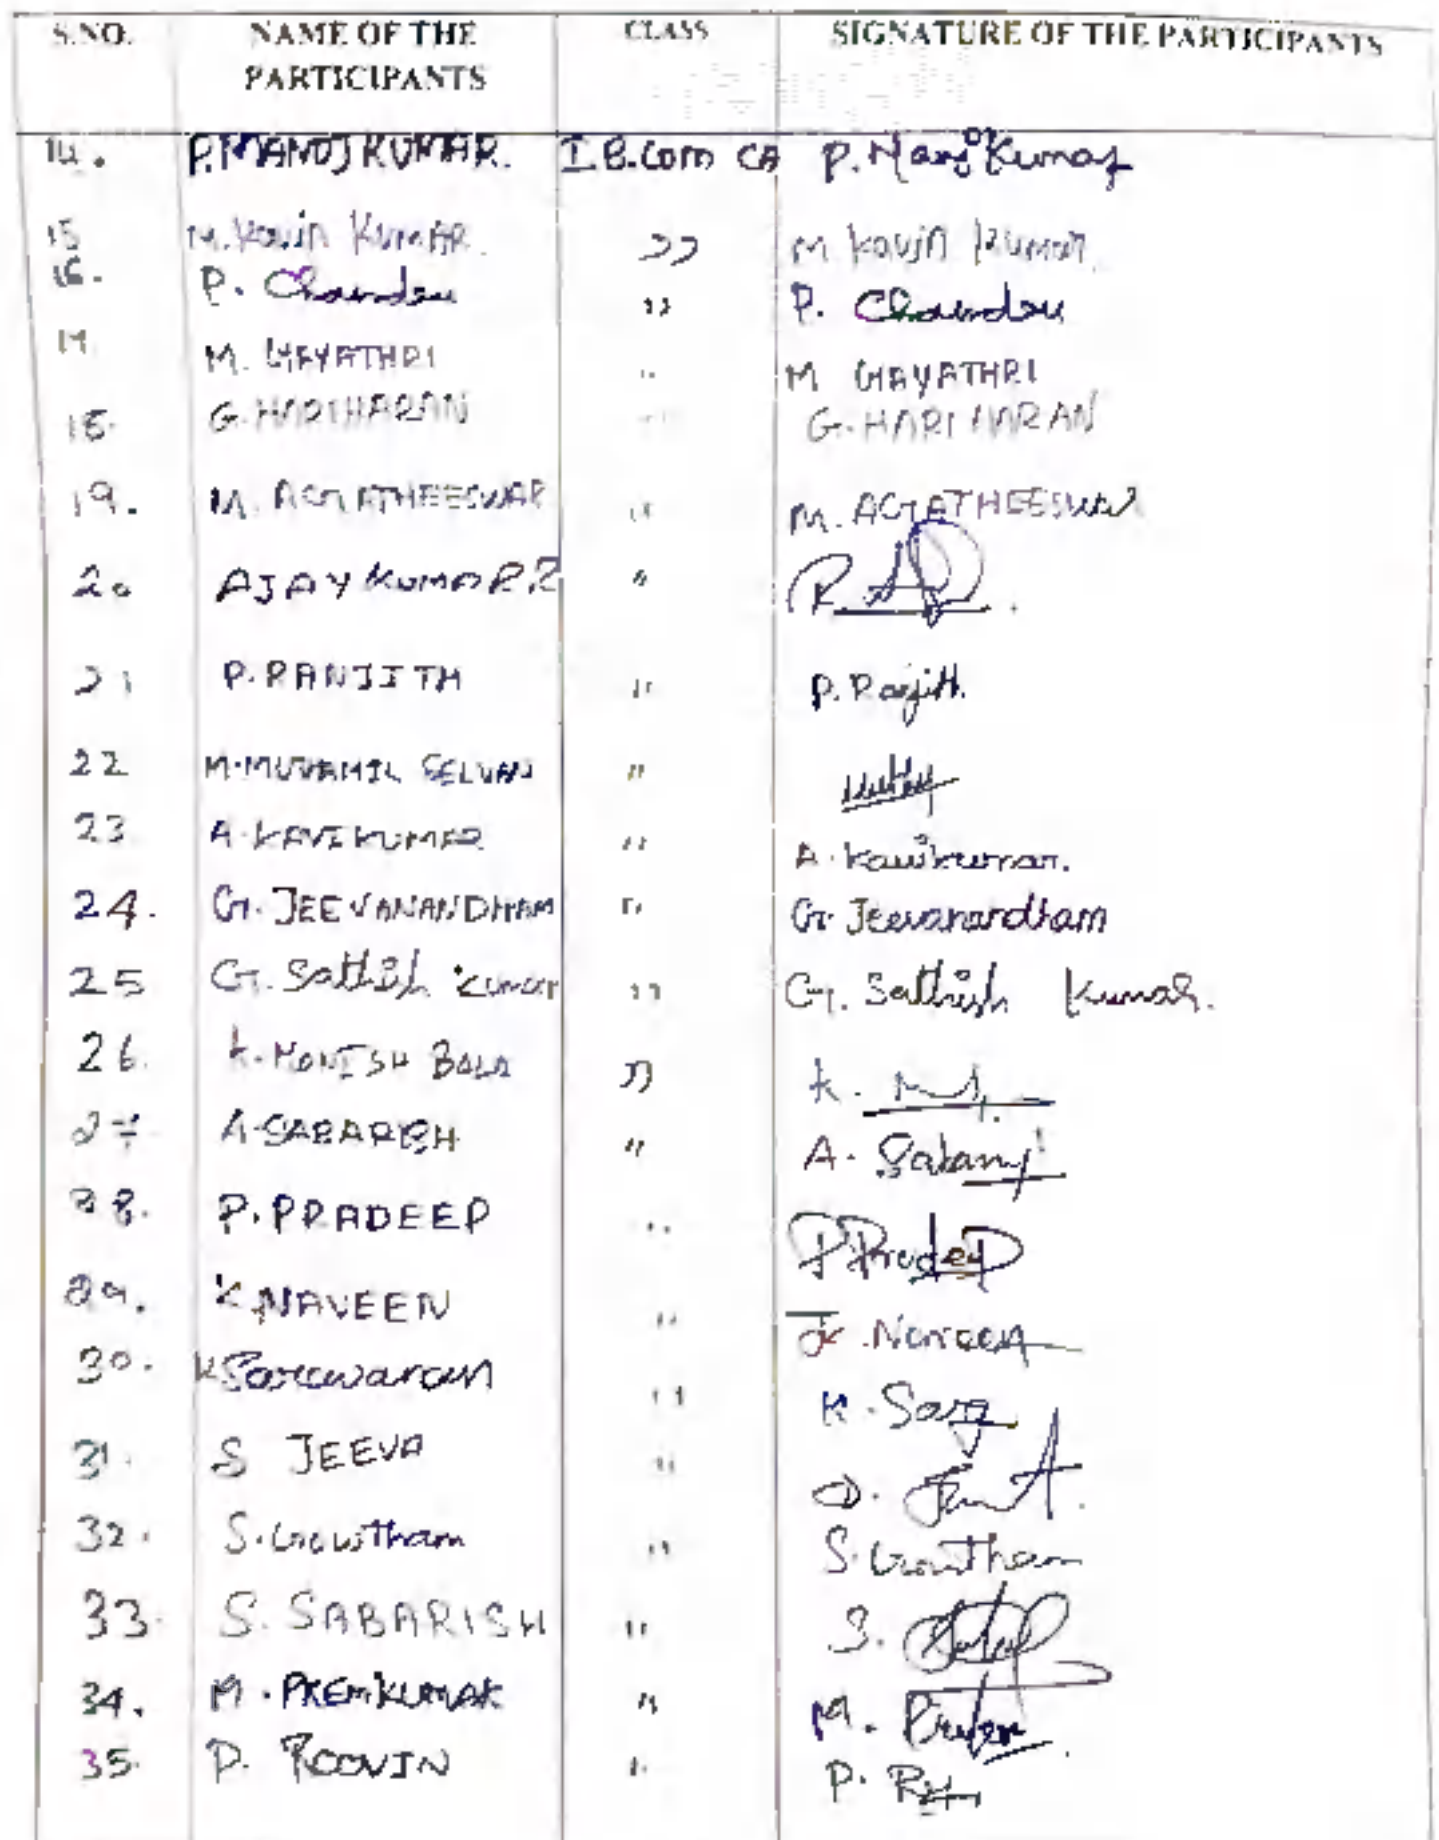 S.NO. NAME OF THE PARTICIPANTS CLASS SIGNATURE OF THE PARTICIPANTS
14. P.MANOJ KUMAR. I B.Com CA P. Manoj Kumar
15 M. Kavin KUMAR. " M Kavin Kumar.
16. P. Chandru " P. Chandru
17 M. GAYATHRI " M GAYATHRI
18. G. HARIHARAN " G. HARIHARAN
19. M. AGATHEESWAR " M. AGATHEESWAR
20 AJAY KUMAR R " R.
21 P. RANJITH " P. Ranjith.
22 M. MUVAMIL SELVAN "
23 A. KAVIKUMAR " A. Kavikumar.
24. G. JEEVANANDHAM " G. Jeevanandham
25 G. Sathish Kumar " G. Sathish Kumar.
26. K. MONISH BALA " K.
27 A. SABARISH " A.
28. P. PRADEEP " P. Pradeep
29. K NAVEEN " K. Naveen
30. K " K.
31. S JEEVA "
32. S. Gowtham " S. Gowtham
33. S. SABARISH " S.
34. M. PREMKUMAR " M.
35. P. ROOVIN " P.